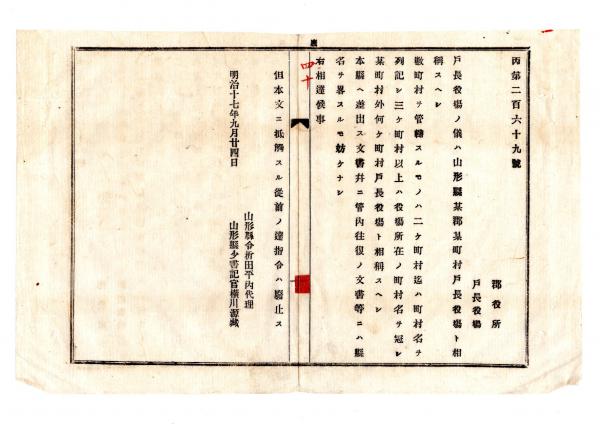 丙第二百六十九號
郡役所
戸長役場
戸長役場ノ儀ハ山形縣某郡某町村戸長役場ト相
稱スヘシ
數町村ヲ管轄スルモノハ二ケ町村迄ハ町村名ヲ
列記シ三ケ町村以上ハ役場所在ノ町村名ヲ冠シ
某町村外何ケ町村戸長役場ト相稱スヘシ
本縣ヘ差出ス文書幷ニ管内往復ノ文書等ニハ縣
名ヲ畧スルモ妨ケナシ
右相達候事
四十
但本文ニ抵觸スル從前ノ達指令ハ廢止ス
明治十七年九月廿四日
山形縣令折田平内代理
山形縣少書記官横川源藏